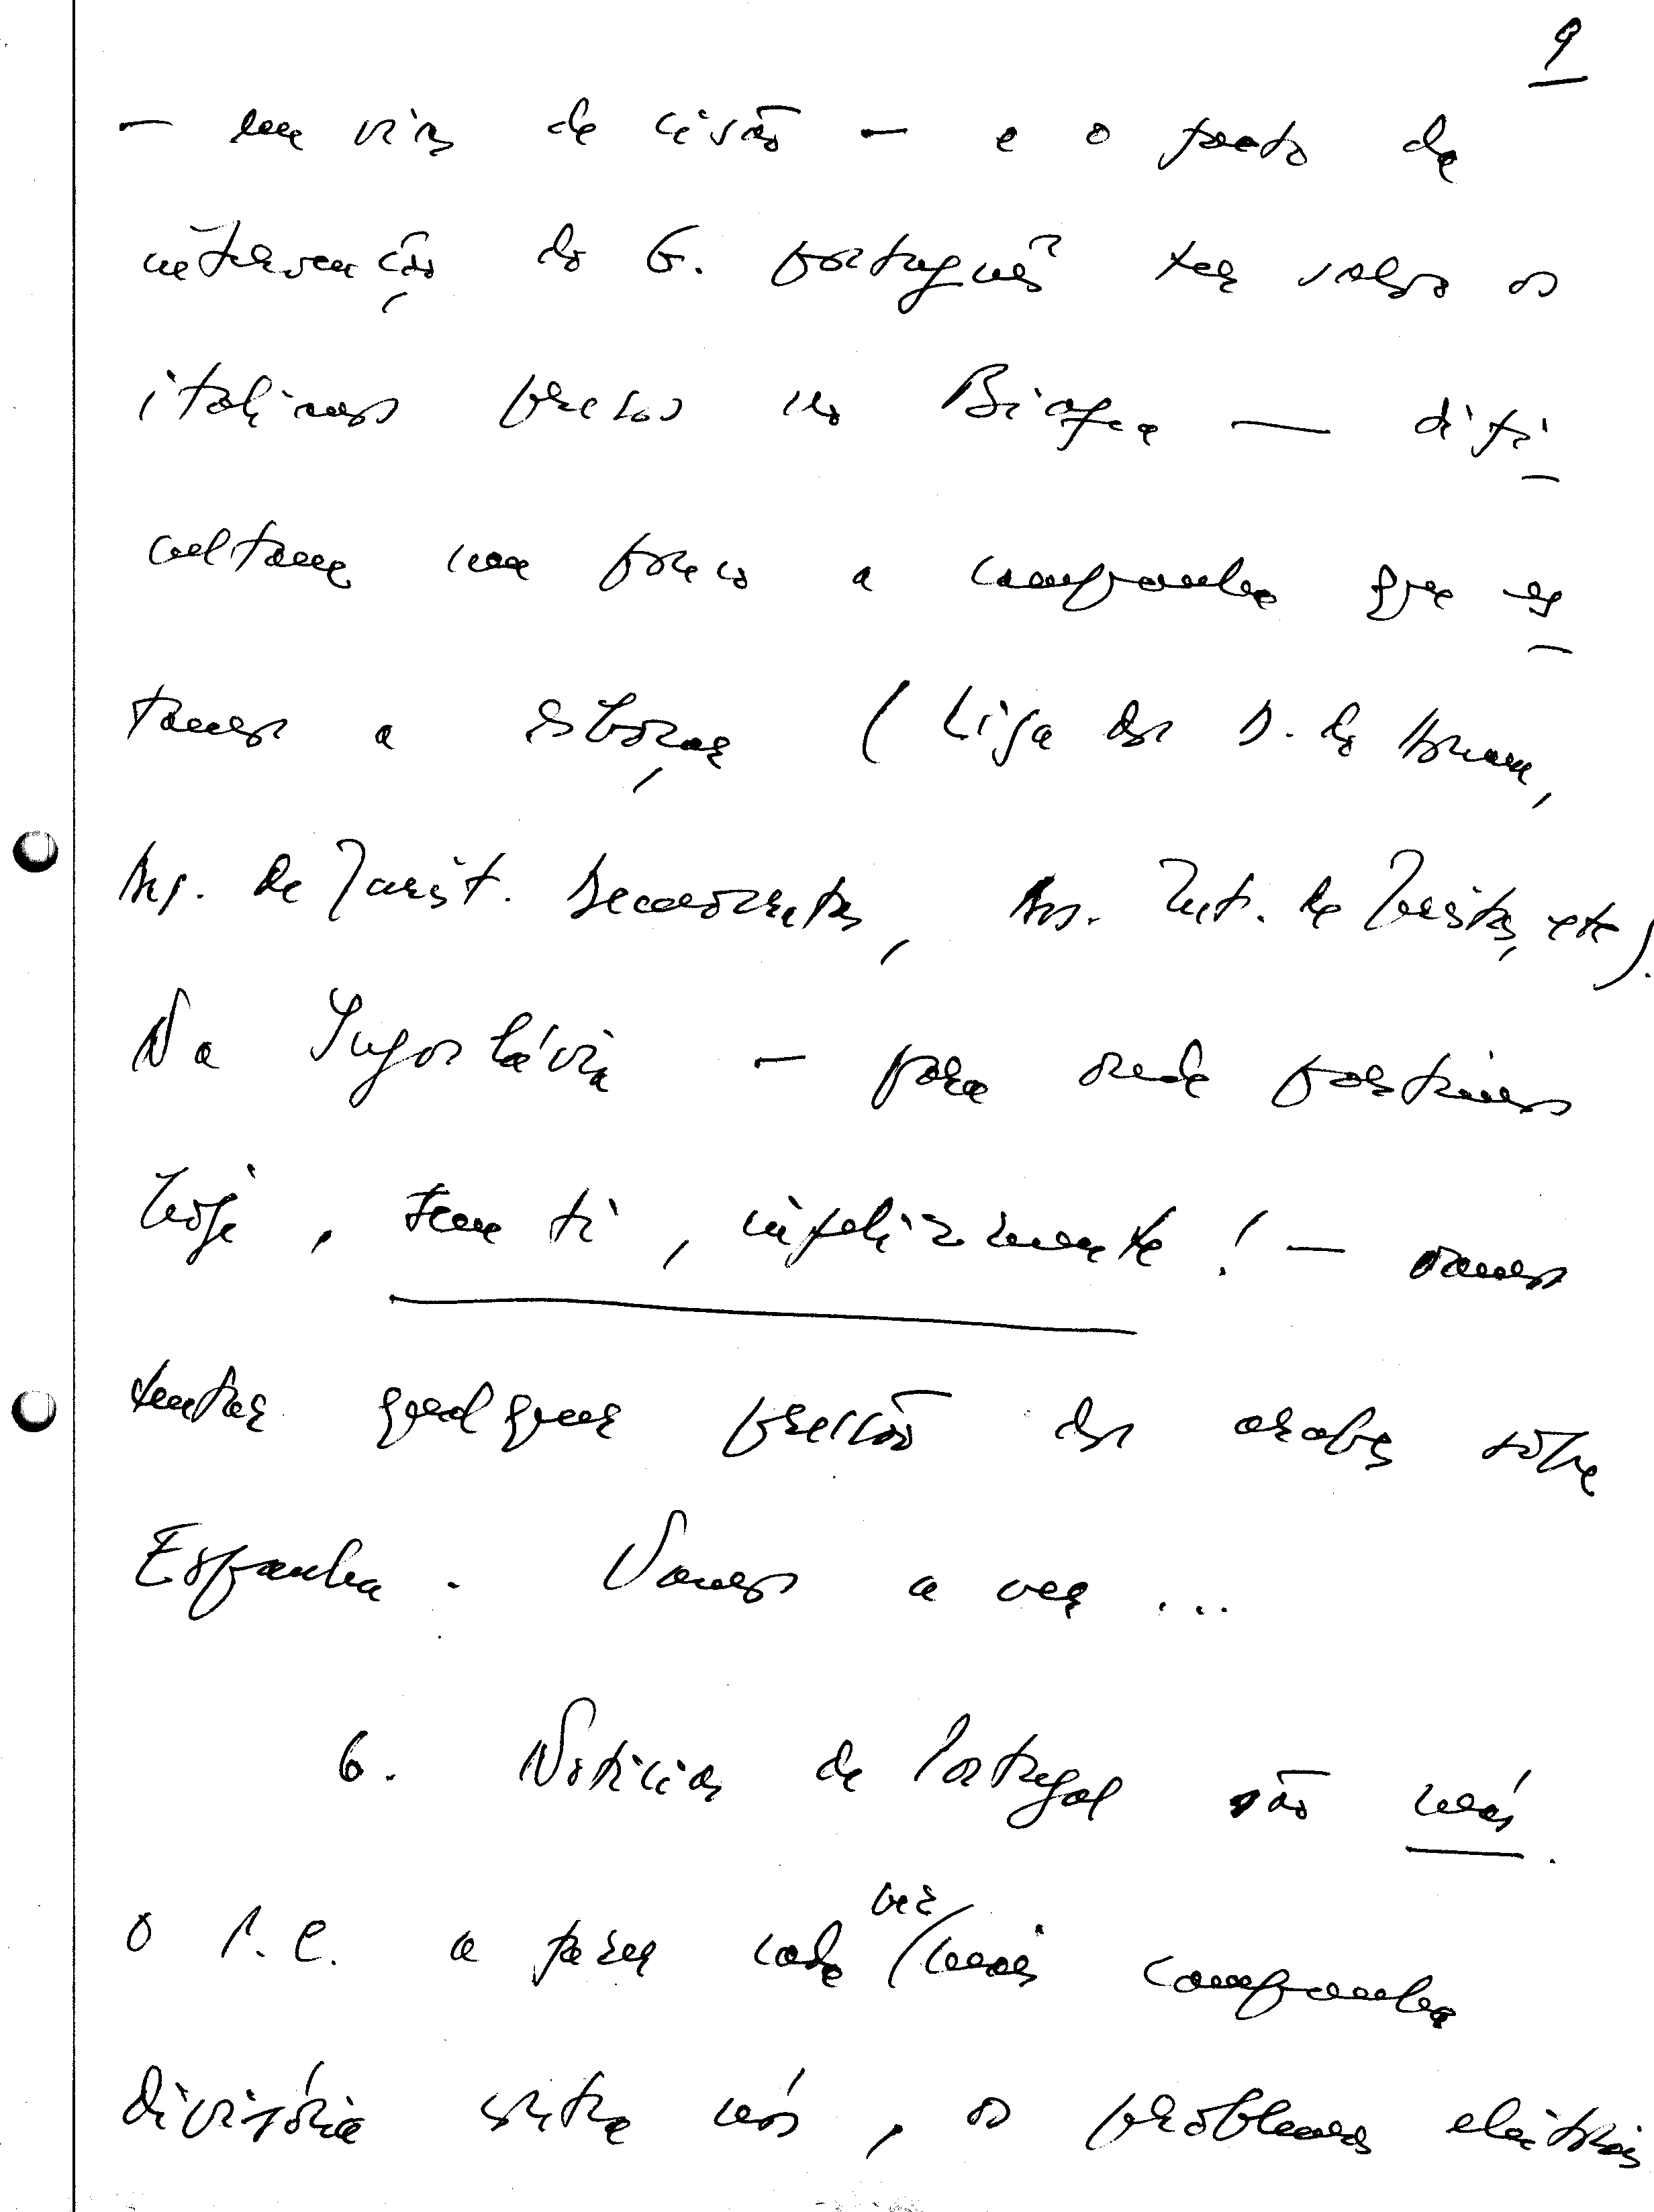 9
– em vias de cisão – e o facto da
intervenção do G. português ter salvo os
italianos presos no Biafra — difi-
cultam um pouco a campanha que es-
tamos a esboçar (Liga dos D. do Homem,
Ass. de Jurist. Democratas, Ass. Int. de Juristas, etc).
Na Jugoslávia – para onde partimos
hoje, sem ti, infelizmente! – vamos
tentar qualquer pressão dos arabes sôbre
Espanha. Vamos a ver ...
6. Noticias de Portugal são más.
O P.C. a fazer cada vez mais campanha
divisória entre nós, os problemas eleitorais